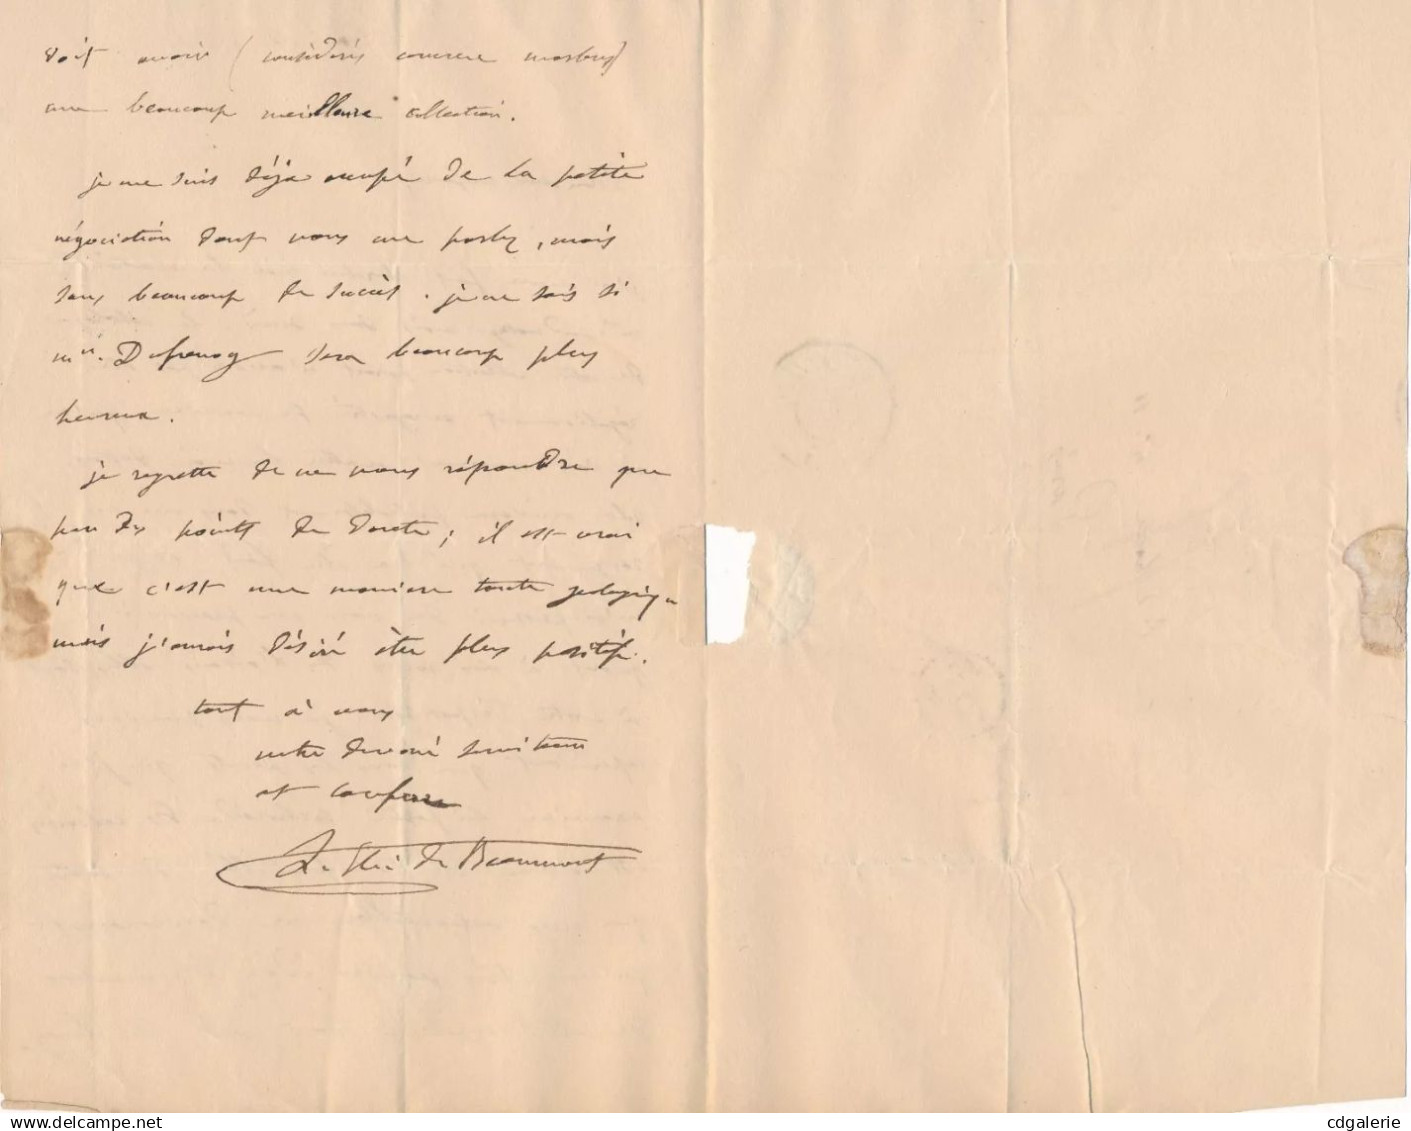 doit avoir (considérés comme marbres)
une beaucoup meilleure collection.
je me suis déjà occupé de la petite
négociation dont vous me parlez, mais
sans beaucoup de succès. je ne sais si
mr. Dufrenoy sera beaucoup plus
heureux.
je regrette de ne vous répondre que
par des points de doute; il est vrai
que c'est une manière toute géologique
mais j'aurais désiré être plus positif.
tout à vous
votre dévoué serviteur
et confrère
L. Élie de Beaumont
cdgalerie